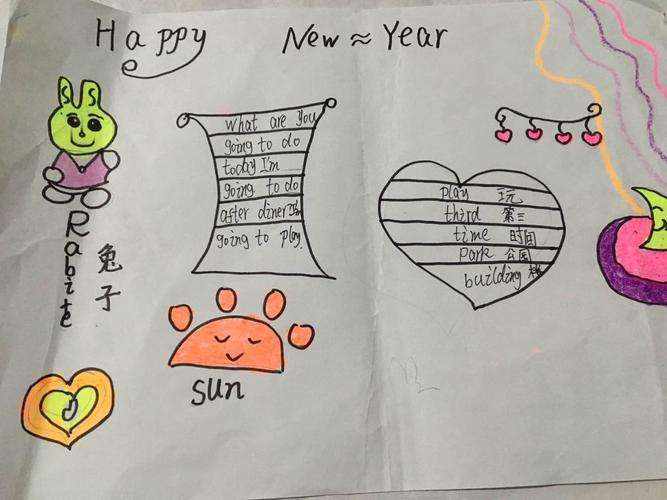 Happy New ≈ Year
What are you
going to do
today I'm
going to do
after diner I'm
going to play.
play 玩
third 第三
time 时间
park 公园
building
Rabite
兔子
sun